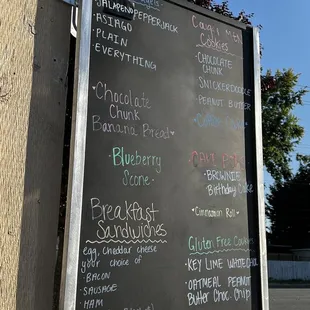 JALAPENO PEPPERJACK
- ASIAGO
- PLAIN
- EVERYTHING
Chocolate
Chunk
Banana Bread
- Blueberry
Scone -
Breakfast
Sandwiches
egg, cheddar cheese
your choice of
- BACON
- SAUSAGE
- HAM
Cookies
- CHOCOLATE
CHUNK
- SNICKERDOODLE
- PEANUT BUTTER
- BROWNIE
Birthday Cake
Cinnamon Roll
Gluten Free
- KEY LIME WHITE
- OATMEAL PEANUT
Butter Choc Chip